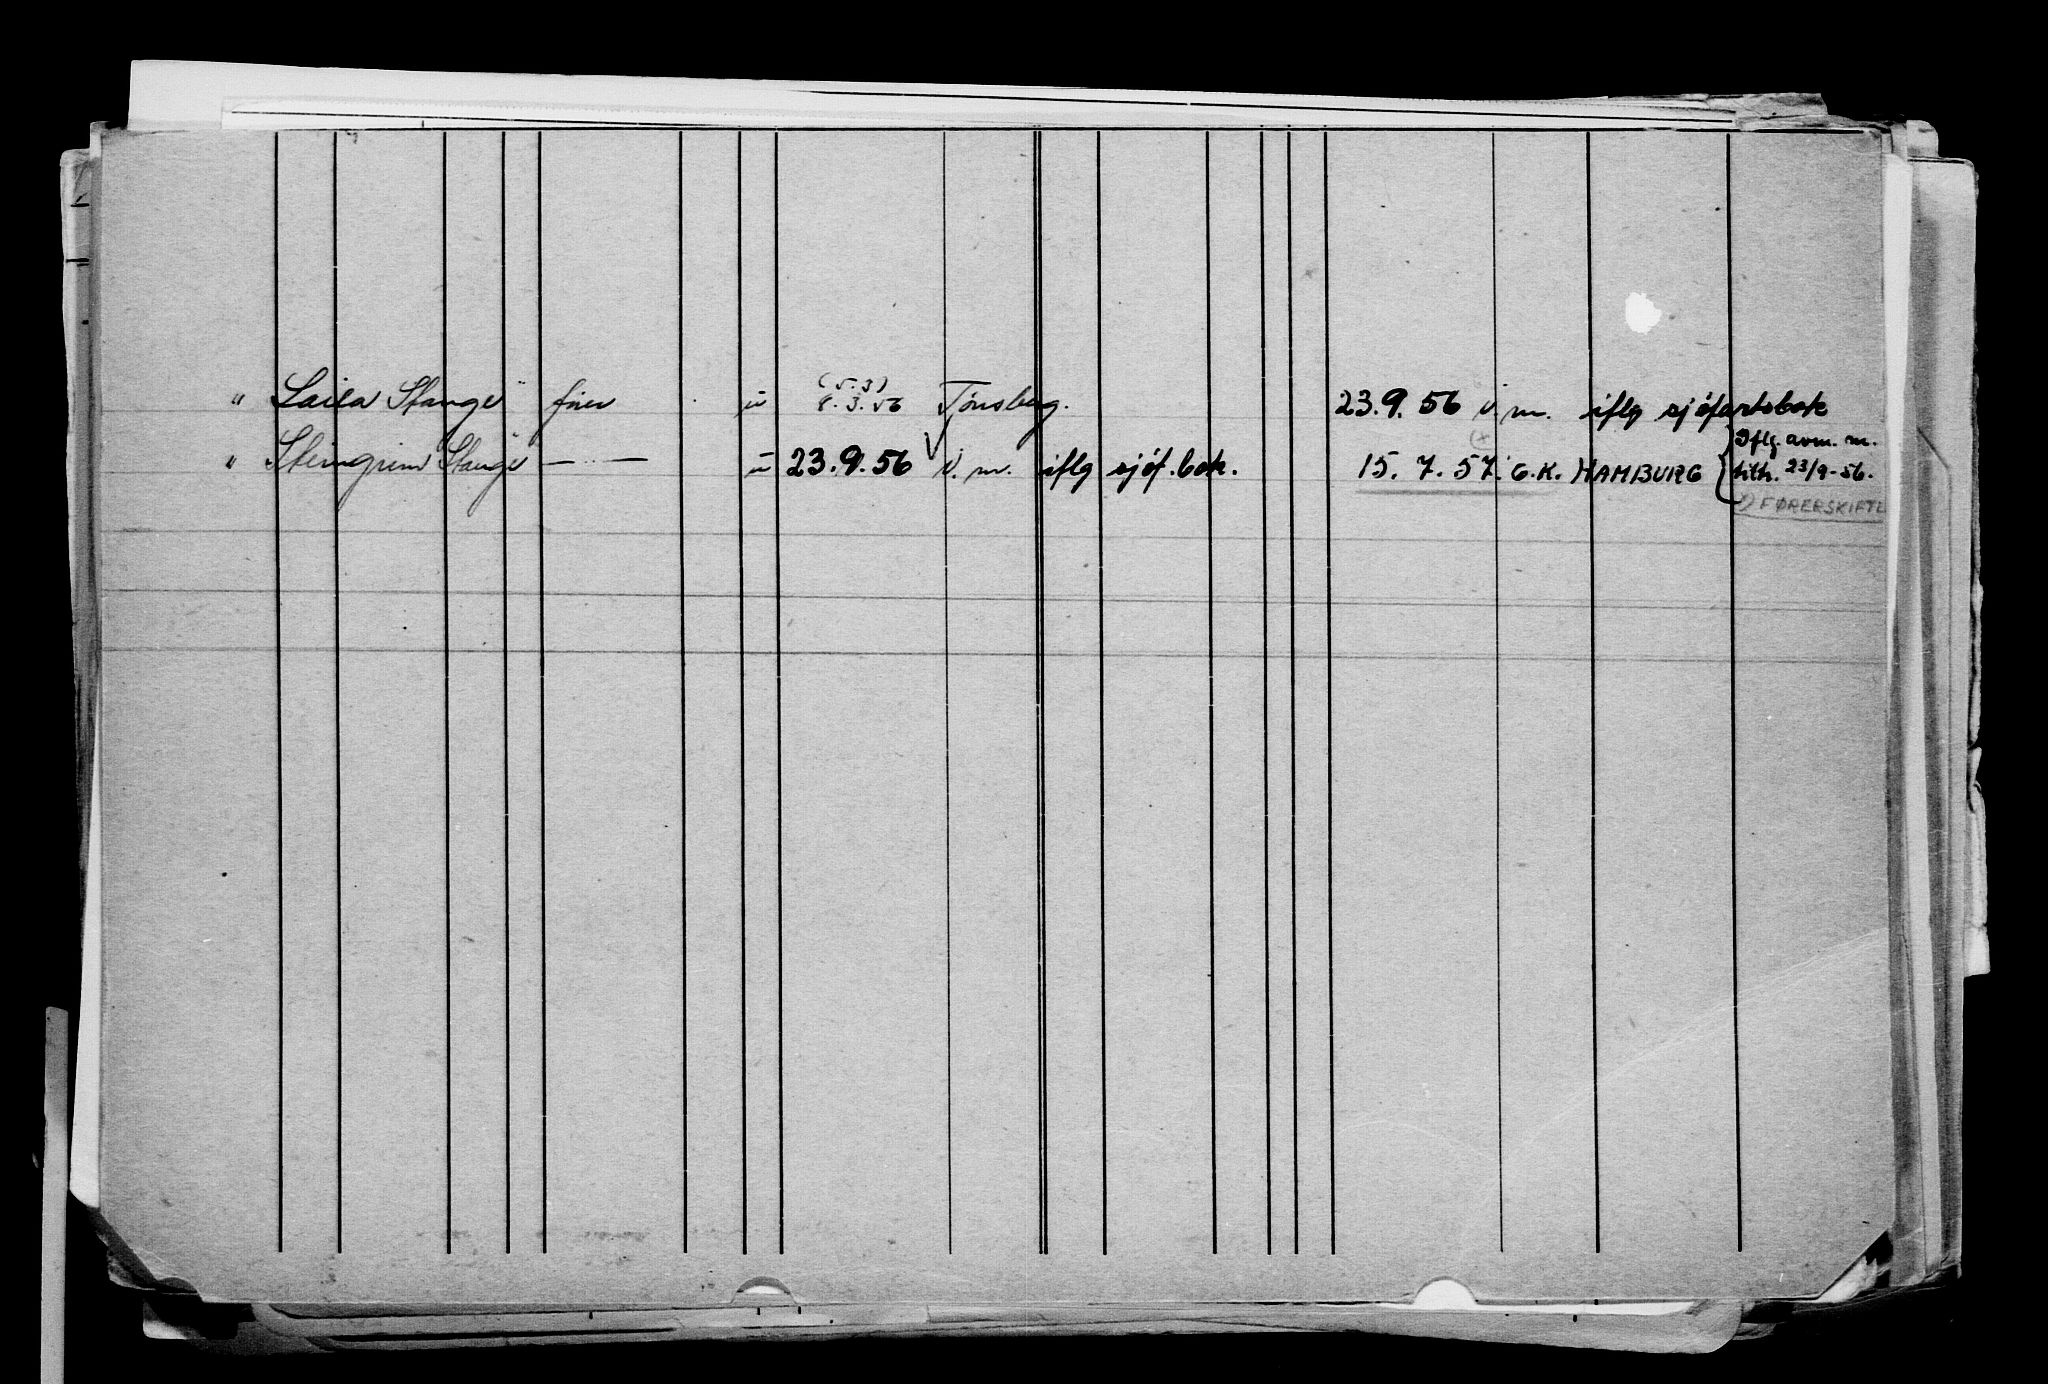 (5.3)
" Laila Stange fører u 8.3.56 Tønsberg. 23.9.56 v.m. iflg sjøfartsbok
" Steingrim Stange —"— u 23.9.56 v.m. iflg sjøf.bok. 15.7.57. G.K. HAMBURG
Iflg. avm. m.
tilh. 23/9-56.
FØRERSKIFTE